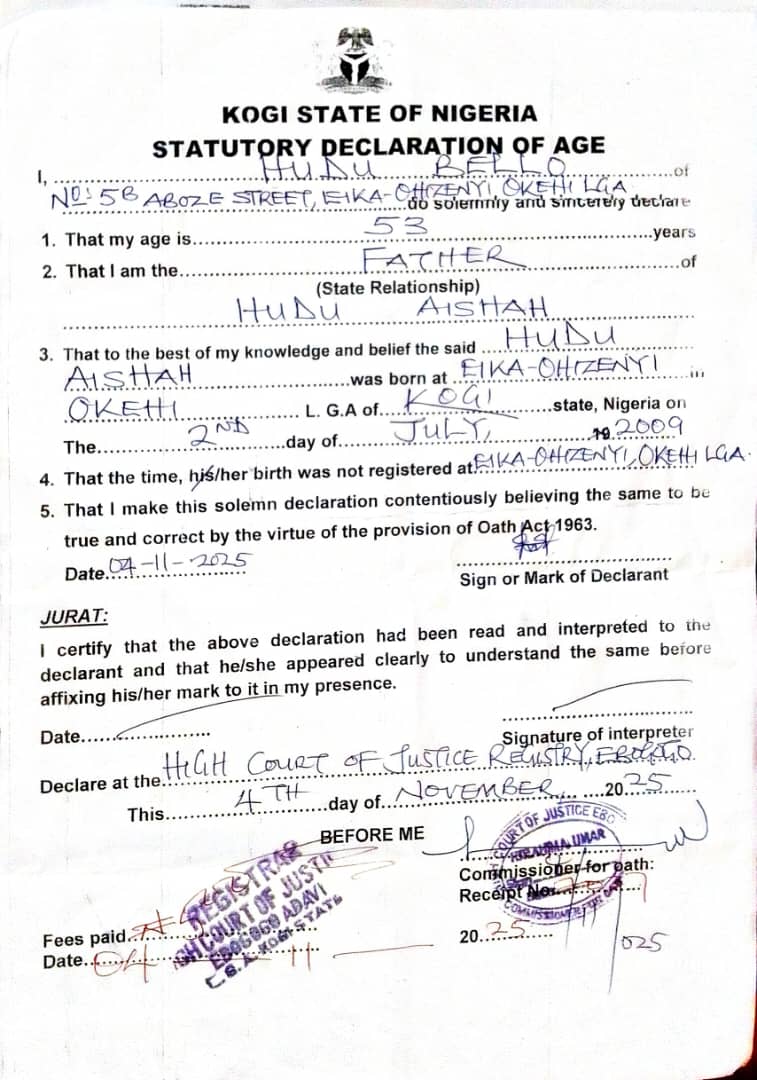 KOGI STATE OF NIGERIA
STATUTORY DECLARATION OF AGE
I, HUDU BELLO of
NO: 5B ABOZE STREET, EIKA-OHIZENYI, OKEHI LGA do solemnly and sincerely declare
1. That my age is 53 years
2. That I am the FATHER of
(State Relationship)
HUDU AISHAH
3. That to the best of my knowledge and belief the said HUDU
AISHAH was born at EIKA-OHIZENYI in
OKEHI L. G.A of KOGI state, Nigeria on
The 2ND day of JULY, 19 2009
4. That the time, his/her birth was not registered at EIKA-OHIZENYI, OKEHI LGA.
5. That I make this solemn declaration contentiously believing the same to be
true and correct by the virtue of the provision of Oath Act 1963.
Date 04-11-2025
Sign or Mark of Declarant
JURAT:
I certify that the above declaration had been read and interpreted to the
declarant and that he/she appeared clearly to understand the same before
affixing his/her mark to it in my presence.
Date
Signature of interpreter
Declare at the HIGH COURT OF JUSTICE REGISTRY, EBOGOGO
This 4TH day of NOVEMBER, 2025
BEFORE ME
COURT OF JUSTICE
UMAR
COMMISSIONER FOR
Commissioner for oath:
Receipt No.
REGISTRAR
COURT OF JUSTICE
EBOGOGO ADAVI
L.G.A. KOGI STATE
Fees paid
Date 04 11
20 25
025